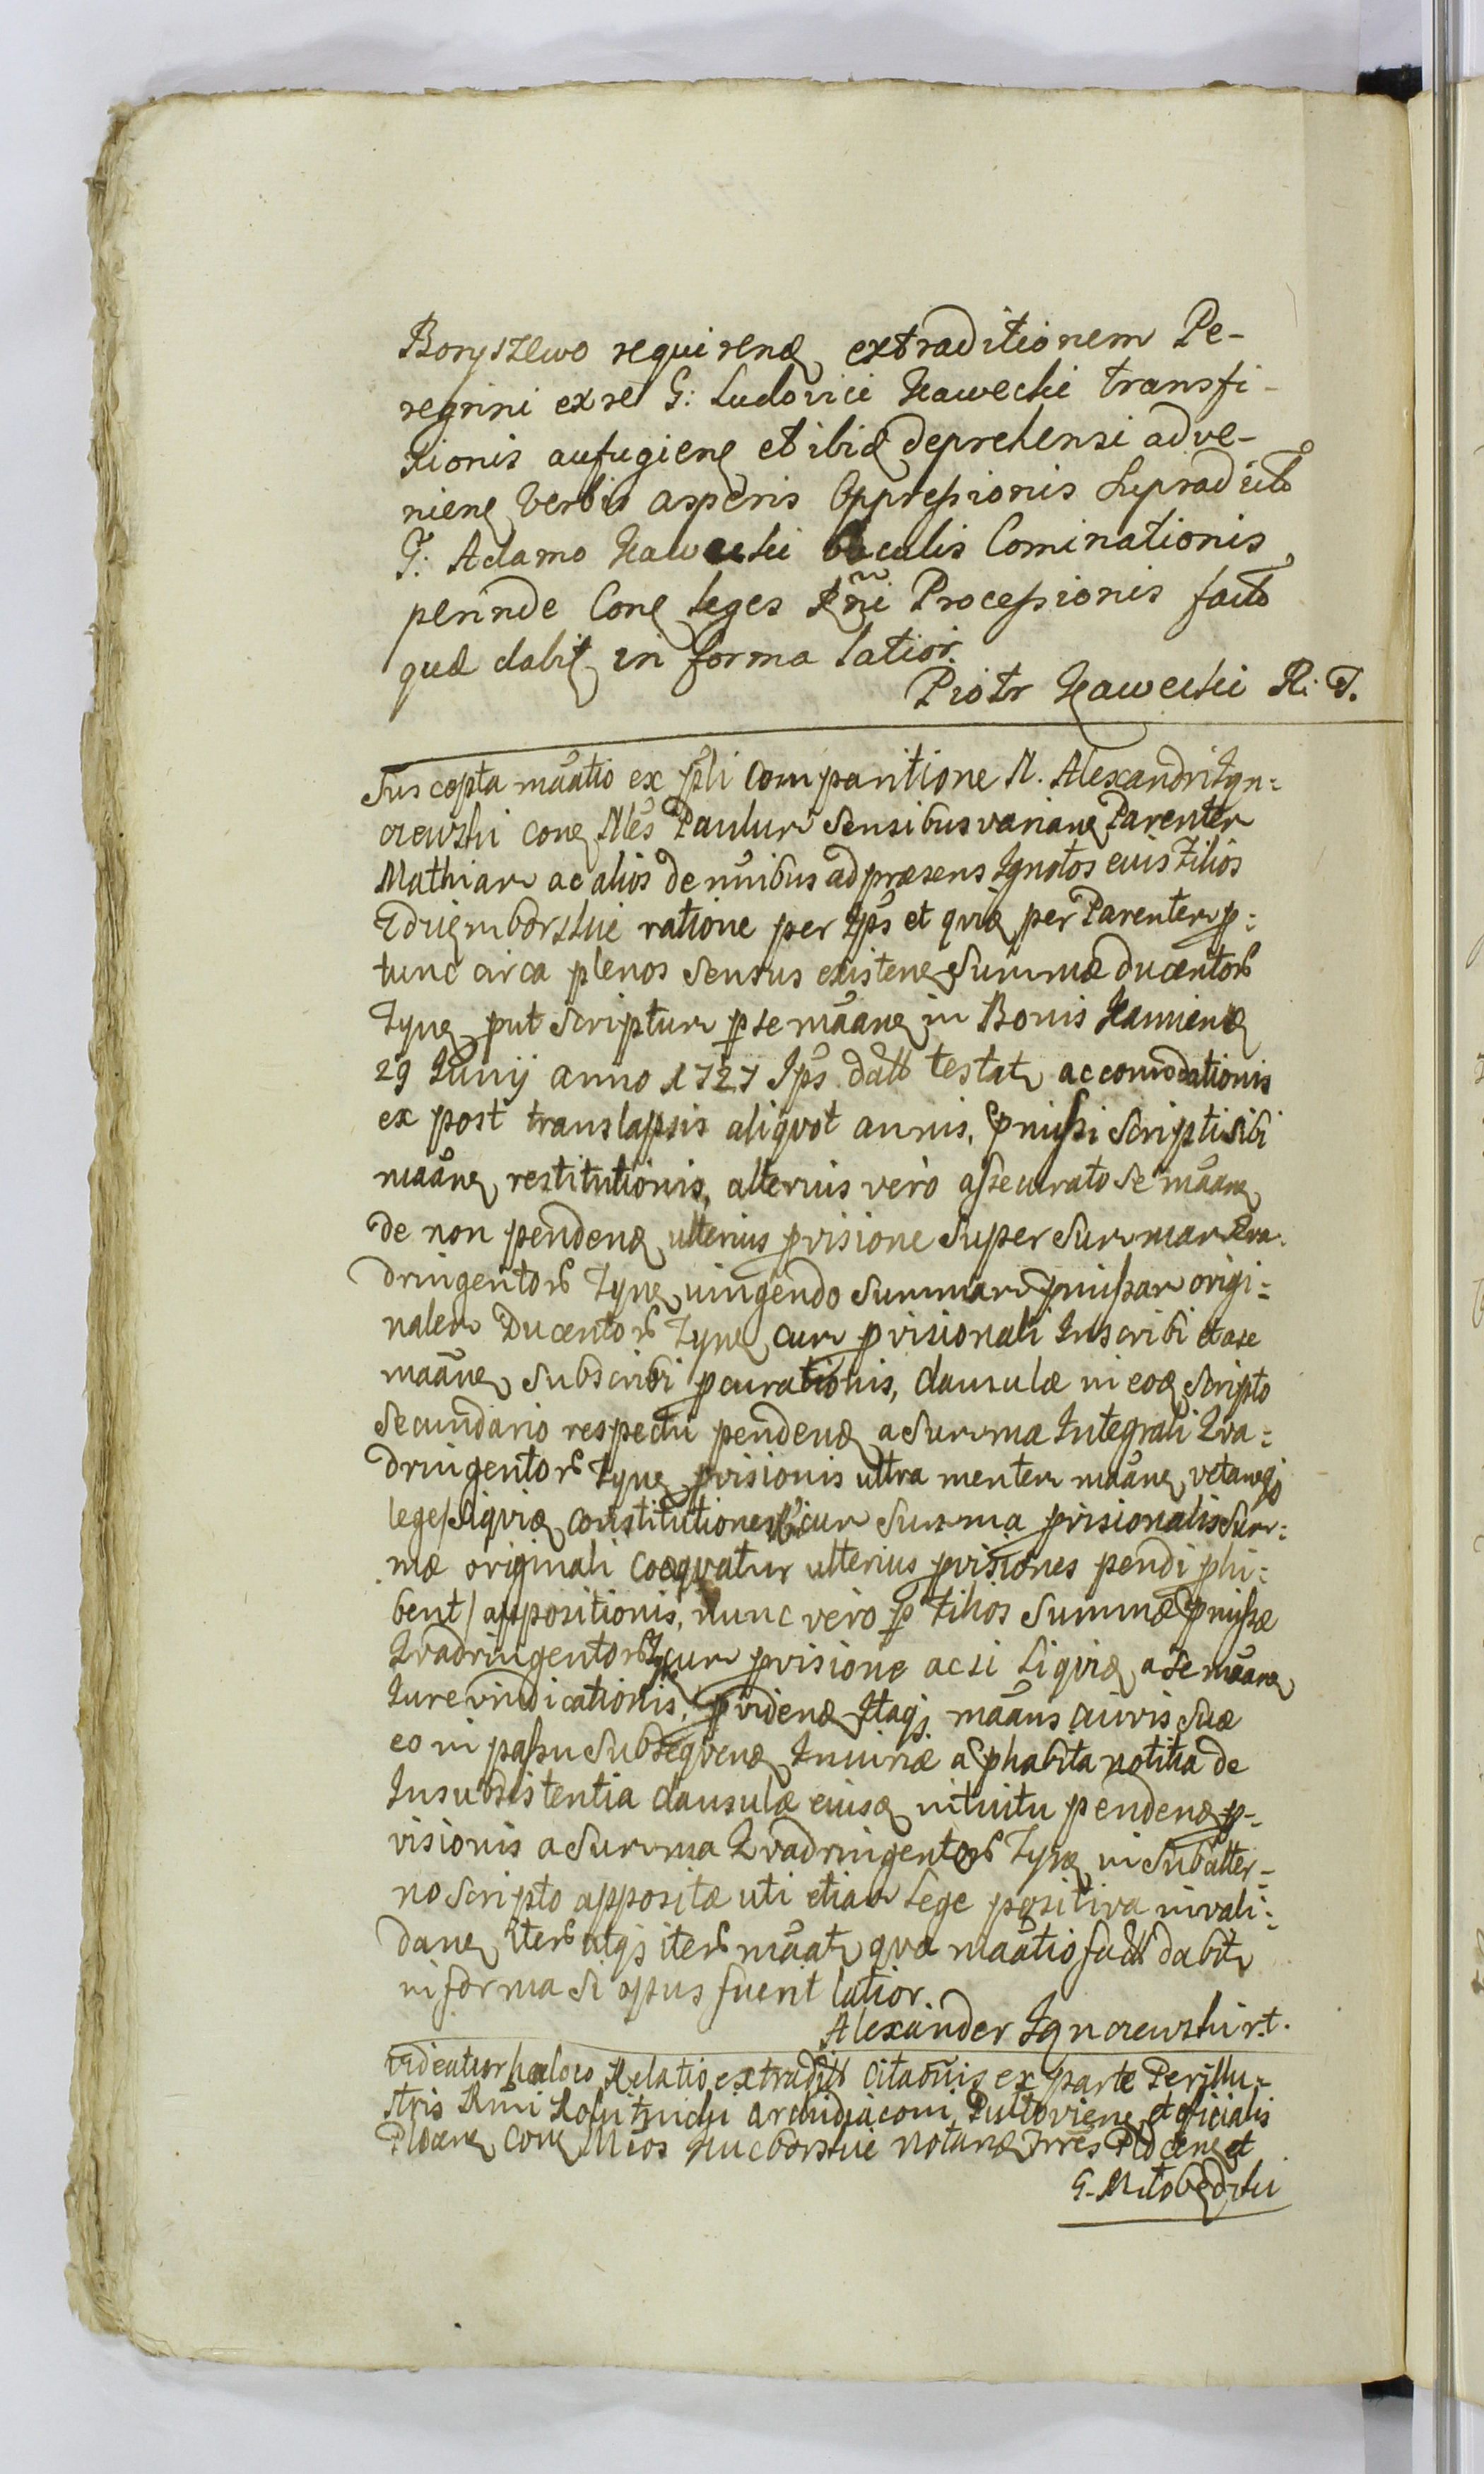 Boryszewo requirend extraditionem Pe-
regrini ex re G: Ludovici Kawecki transfi-
xionis aufugien et ibid deprehensi adve-
nien verbis asperis Oppressionis Supradicto
G: Adamo Kawecki baculis Cominationis
perinde Con leges Rñi Processionis facto
quæ dabit in forma latior.
Piotr Kawecki R. T.
Suscepta mãatio ex psli Comparitione N. Alexandri Ign=
acewski con Nles Paulum Sensibus varian Parentem
Mathiam ac alios de nñibus ad præsens Ignotos eius Filios
Zdziemborskie ratione per Ips et quid per Parentem p=
tunc circa plenos Sensus existen Summæ ducentor
Tyn put Scriptum p se mãan in Bonis Kamien
29 Junij anno 1727 Ips datt testat accomodationis
ex post translapsis aliqvot annis, pmissi Scripti sibi
mãan restitutionis, alterius verò assecurato se mãan
de non pendend ulterius pvisione super Summam Qva=
dringentor Tyn, vingendo Summam pmissam origi=
nalem Ducentor Tyn cum pvisionali Inscribi et a se
maãn Subscribi pcurationis, clausulæ in eod Scripto
Secundario respectu pendend a Summa Integrali Qva=
dringentor Tyn pvisionis ultra mentem mãan, vetanq
lege / Siqvid constitutiones ubi cum Summa pvisionalis Sum=
mæ originali coæqvatur ulterius pvisiones pendi phi=
bent / appositionis, nunc vero p Filios Summæ pmissæ
Qvadringentor Tyn cum pvisione ac si Siqvid a se mãan
Jure vindicationis, pvidend Itaq mãans civis suæ
eo in passu subseqvend Iniuriæ a phabita notitia de
Insubsistentia clausulæ eiusd intuitu pendend p-
visionis a Summa Qvadringentor Tyn in Subalter-
no Scripto appositæ uti etiam Lege positiva invali=
dan, iter atq iter mãat qva maãtio fact dabit
in forma si opus fuerit latior.
Alexander Ignacewski r.t.
Videatur hoc loco Relatio extradit Citaõnis ex parte Perillu=
stris Rmi Kolnitnicki Archidiaconi Pultovien et officialis
Plocen Con Nlos Nucborskie Notand Trres Plocen et
G. Nitobędzki